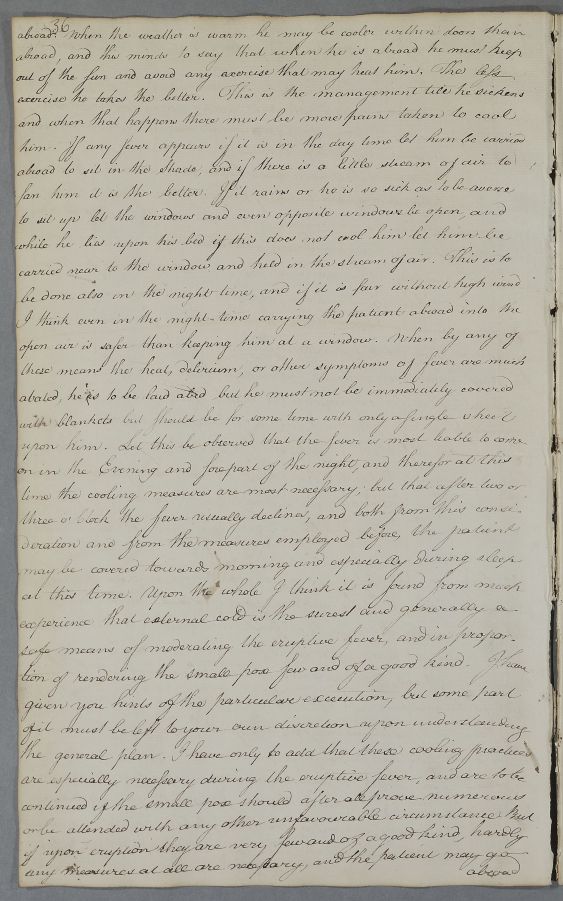 36
abroad. When the weather is warm he may be cooler within doors than
abroad, and this minds to say that when he is abroad he must keep
out of the sun and avoid any exercise that may heat him. The less
exercise he takes the better. This is the management till he sickens
and when that happens there must be more pains taken to cool
him. If any fever appears if it is in the day time let him be carried
abroad to sit in the shade, and if there is a little stream of air to
fan him it is the better. If it rains or he is so sick as to be averse
to sit up let the windows and even opposite windows be open, and
while he lies upon his bed if this does not cool him let him be
carried near to the window and held in the stream of air. This is to
be done also in the night time, and if it is fair without high wind
I think even in the night-time carrying the patient abroad into the
open air is safer than keeping him at a window. When by any of
these means the heat, delirium, or other symptoms of fever are much
abated, he is to be laid abed but he must not be immediately covered
with blankets but should be for some time with only a single sheet
upon him. Let this be observed that the fever is most liable to come
on in the Evening and forepart of the night, and therefor at this
time the cooling measures are most necessary; but that after two or
three o' clock the fever usually declines, and both from this consi-
deration and from the measures employed before, the patient
may be covered towards morning and especially during sleep
at this time. Upon the whole I think it is found from much
experience that external cold is the surest and generally a
safe means of moderating the eruptive fever, and in propor-
tion of rendering the small pox few and of a good kind. I have
given you hints of the particular execution, but some part
of it must be left to your own discretion upon understanding
the general plan. I have only to add that these cooling practices
are especially necessary during the eruptive fever, and are to be
continued if the small pox should after all prove numerous
or be attended with any other unfavourable circumstance But
if upon eruption they are very few and of a good kind, hardly
any measures at all are necessary, and the patient may go
abroad